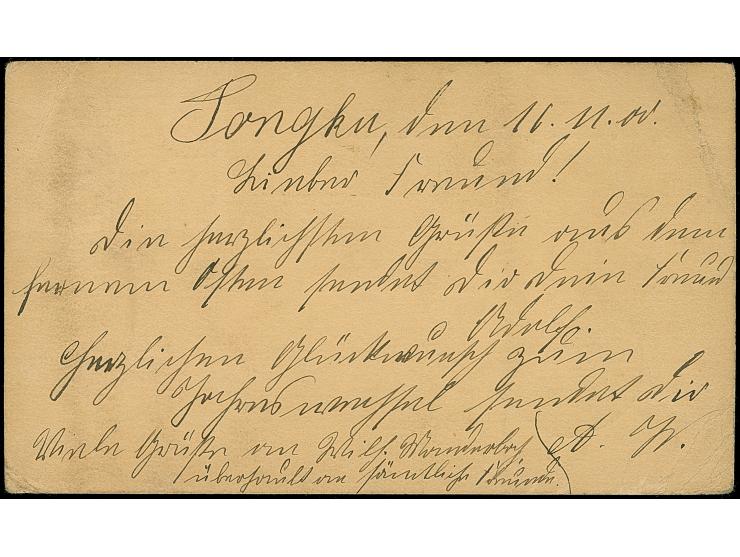 Tongku, den 16.11.00.
Lieber Freund!
Die herzlichsten Grüße aus dem
fernen Osten sendet Dir dein Freund
Adolf.
Herzlichen Glückwunsch zum
Jahreswechsel sendet Dir
A. W.
Viele Grüße an Wilh. Manderbach,
überhaupt an sämtliche Freunde.